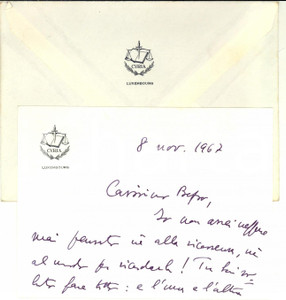 CVRIA
LUXEMBOURG
CVRIA
LUXEMBOURG
8 nov. 1967
Carissimo
Io non avrei neppure
mai pensato né alla ricorrenza, né
al modo per ricordarla! Tu hai
fare tutto: e l'una e l'altra